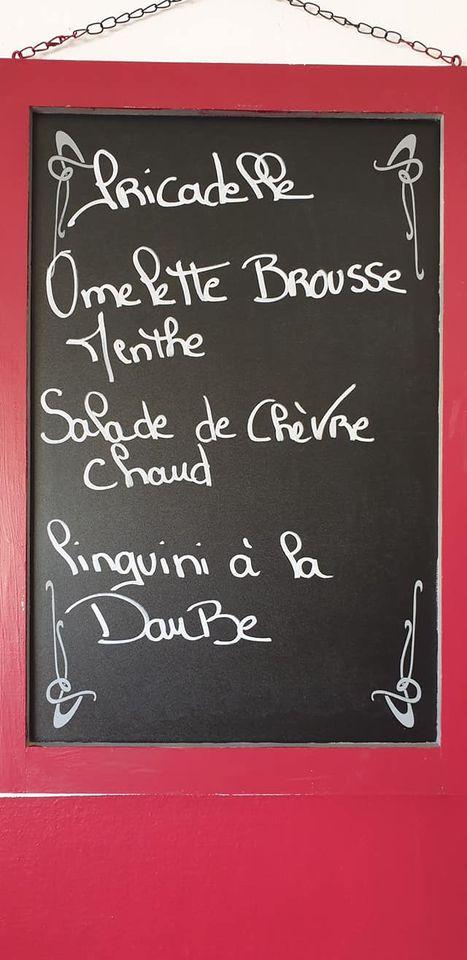 fricadelle
Omelette Brousse
Menthe
Salade de Chèvre
Chaud
linguini à la
DauBe